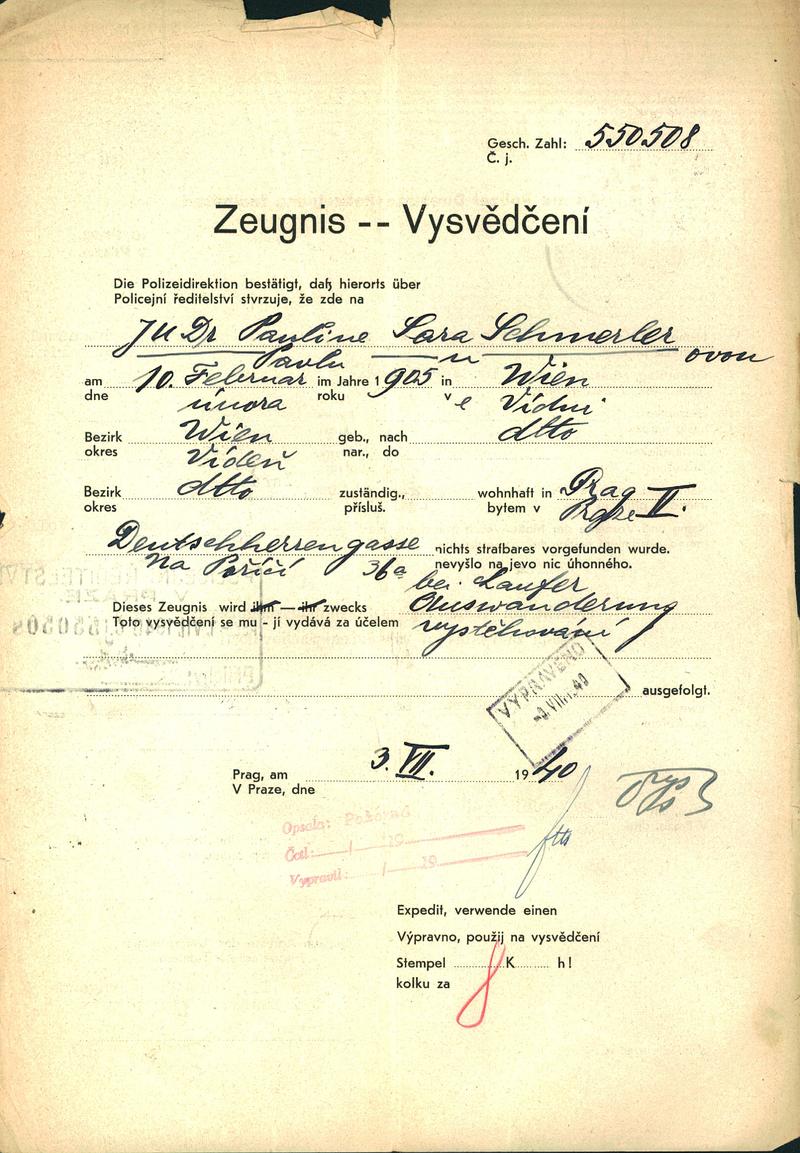 Gesch. Zahl: 550508
Č. j.
Zeugnis -- Vysvědčení
Die Polizeidirektion bestätigt, daß hierorts über
Policejní ředitelství stvrzuje, že zde na
JUDr Pauline Sara Schmerler
Pavlu ovou
am 10. Februar im Jahre 1905 in Wien
dne února roku v e Vídni
Bezirk Wien geb., nach dtto
okres Vídeň nar., do
Bezirk dtto zuständig., wohnhaft in Prag II.
okres přísluš. bytem v Praze
Deutschherrengasse nichts strafbares vorgefunden wurde.
Na Poříčí 36a nevyšlo na jevo nic úhonného.
bei Laufer
Dieses Zeugnis wird ihm — ihr zwecks Auswanderung
Toto vysvědčení se mu - jí vydává za účelem vystěhování
ausgefolgt.
VYPRAVENO
-9.VII.40
Prag, am 3. VII. 1940
V Praze, dne
Opsala: Pokorná
Četl: / 19
Vypravil: / 19
Expedit, verwende einen
Výpravno, použij na vysvědčení
Stempel 8 K h!
kolku za